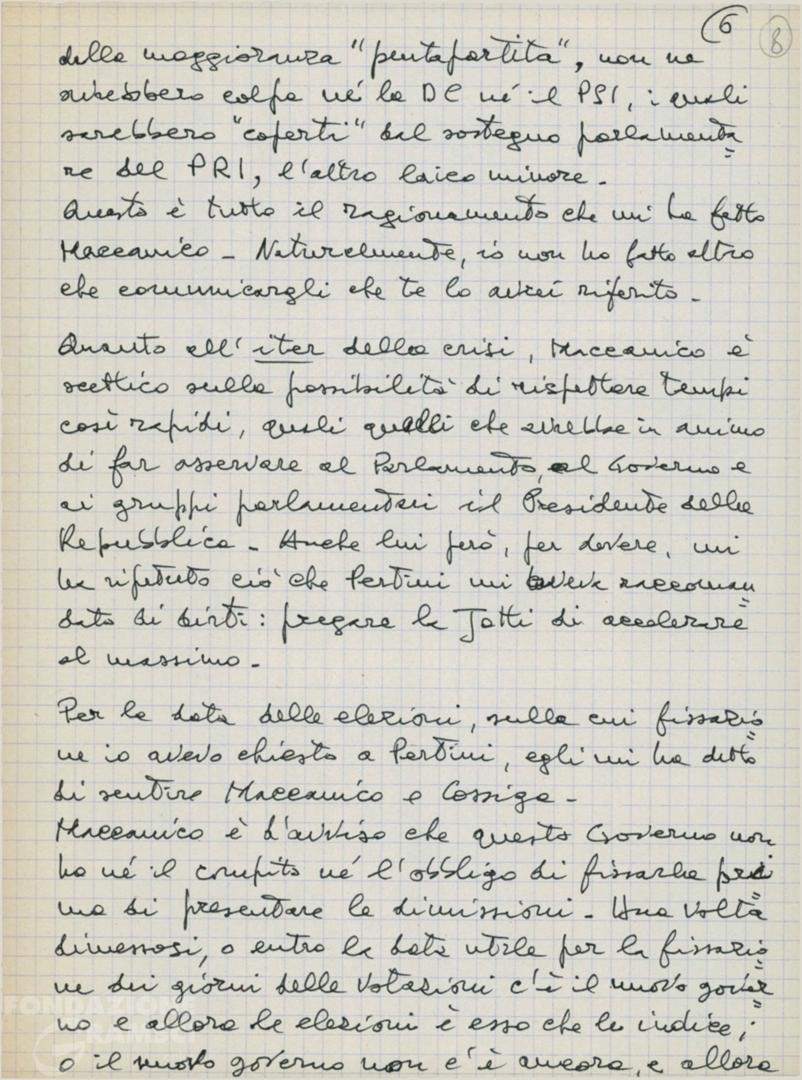 6 8
della maggioranza "pentapartita", non ne
avrebbero colpa né la DC né il PSI, i quali
sarebbero "coperti" dal sostegno parlamenta=
re del PRI, l'altro laico minore.
Questo è tutto il ragionamento che mi ha fatto
Maccanico - Naturalmente, io non ho fatto altro
che comunicargli che te lo avrei riferito.
Quanto all'iter della crisi, Maccanico è
scettico sulla possibilità di rispettare tempi
così rapidi, quali quelli che avrebbe in animo
di far osservare al Parlamento, al Governo e
ai gruppi parlamentari il Presidente della
Repubblica - Anche lui però, per dovere, mi
ha ripetuto ciò che Pertini mi aveva raccoman=
dato di dirti: pregare la Jotti di accelerare
al massimo -
Per la data delle elezioni, sulla cui fissazio=
ne io avevo chiesto a Pertini, egli mi ha detto
di sentire Maccanico e Cossiga -
Maccanico è d'avviso che questo Governo non
ha né il compito né l'obbligo di fissarla pri=
ma di presentare le dimissioni - Una volta
dimessosi, o entro la data utile per la fissazio=
ne dei giorni delle votazioni c'è il nuovo gover=
no e allora le elezioni è esso che le indice;
o il nuovo governo non c'è ancora, e allora
FONDAZIONE
GRAMSCI